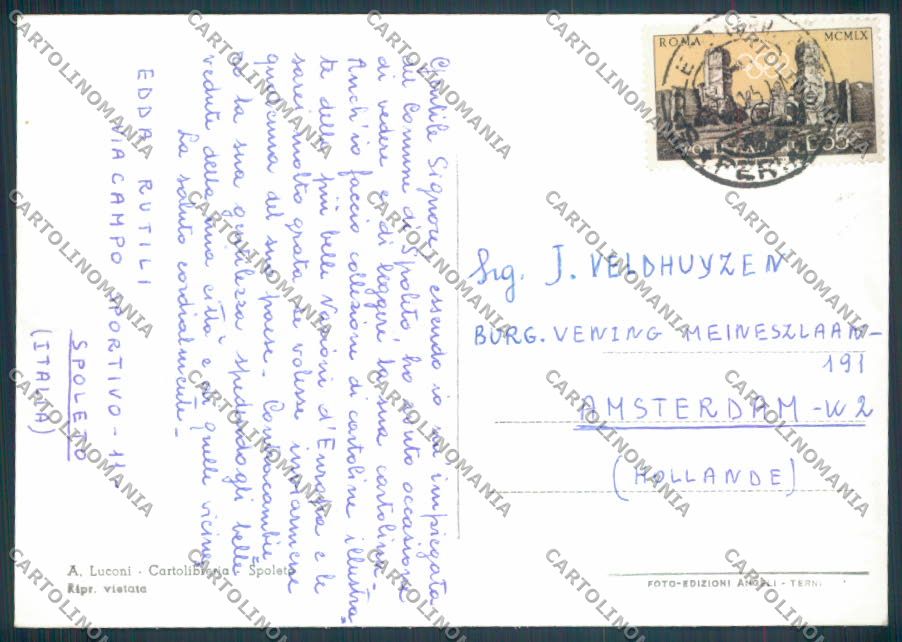 Gentile Signore, essendo io un'impiegata
del Comune di Spoleto, ho avuto occasione
di vedere e di leggere la sua cartolina.
Anch'io faccio collezioni di cartoline illustra_
te delle più belle Nazioni d'Europa e le
sarei molto grata se volesse inviarmene
qualcuna del suo paese. Contraccambie_
rò la sua gentilezza spedendogli belle
vedute della mia città e di quelle vicine.
La saluto cordialmente.
EDDA RUTILI
VIA CAMPO SPORTIVO - 11
SPOLETO
(ITALIA)
ROMA MCMLX
L. 35
Sig. J. VELDHUYZEN
BURG. VENING MEINESZLAAN-
191
AMSTERDAM - W2
(HOLLANDE)
A. Luconi - Cartolibreria - Spoleto
Ripr. vietata
FOTO-EDIZIONI ANGELI - TERNI
CARTOLINOMANIA